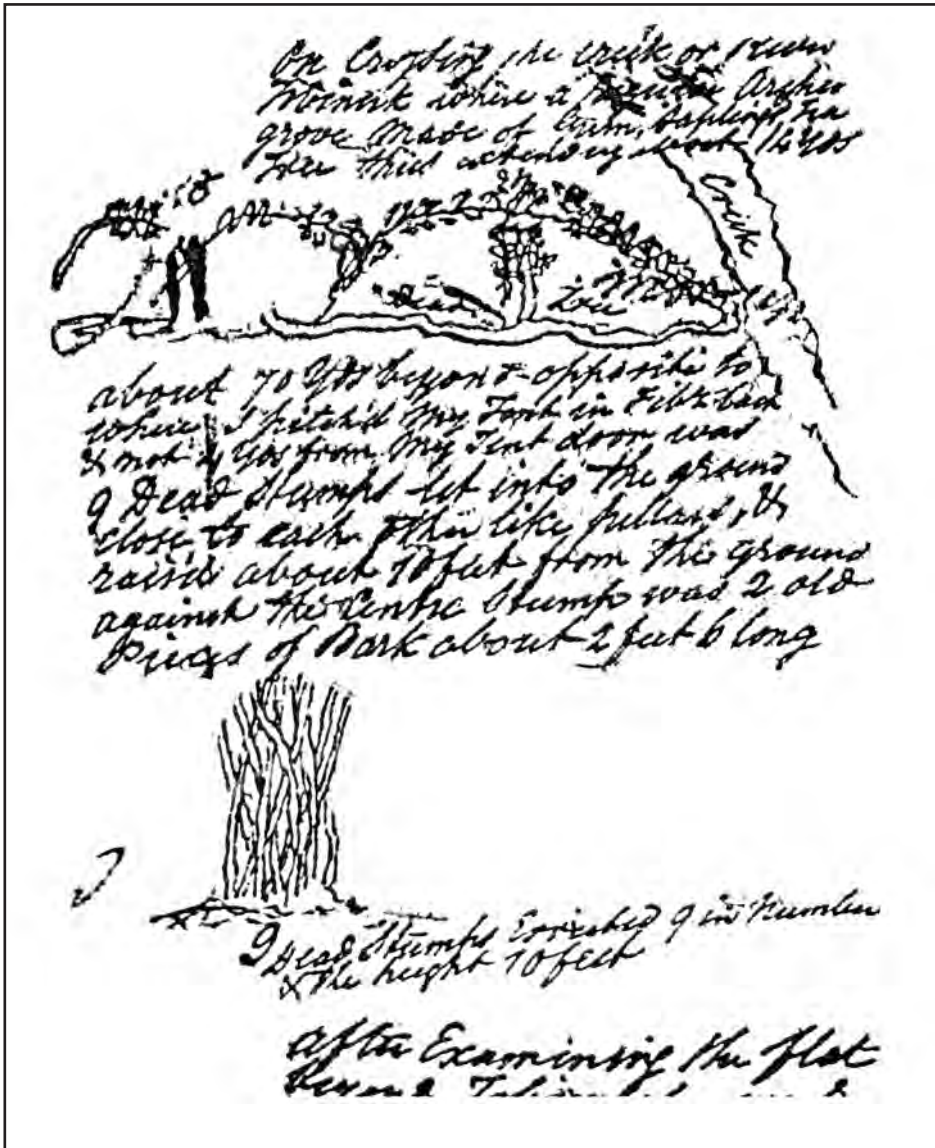 On Crossing the creek or
where a Arches
grove made of Gum, Saplings,
like this extending about 14 yds
Creek
about 70 Yds beyond opposite to
where I pitch'd My Tent in Feb'y last
& not Yds from My Tent door was
9 Dead Stumps let into the ground
close to each other like pillars, &
raised about 10 feet from the ground
against the Centre Stump was 2 old
Pieces of Bark about 2 feet 6 long
9 Dead Stumps Erected 9 in Number
& the height 10 feet
after Examining the flat